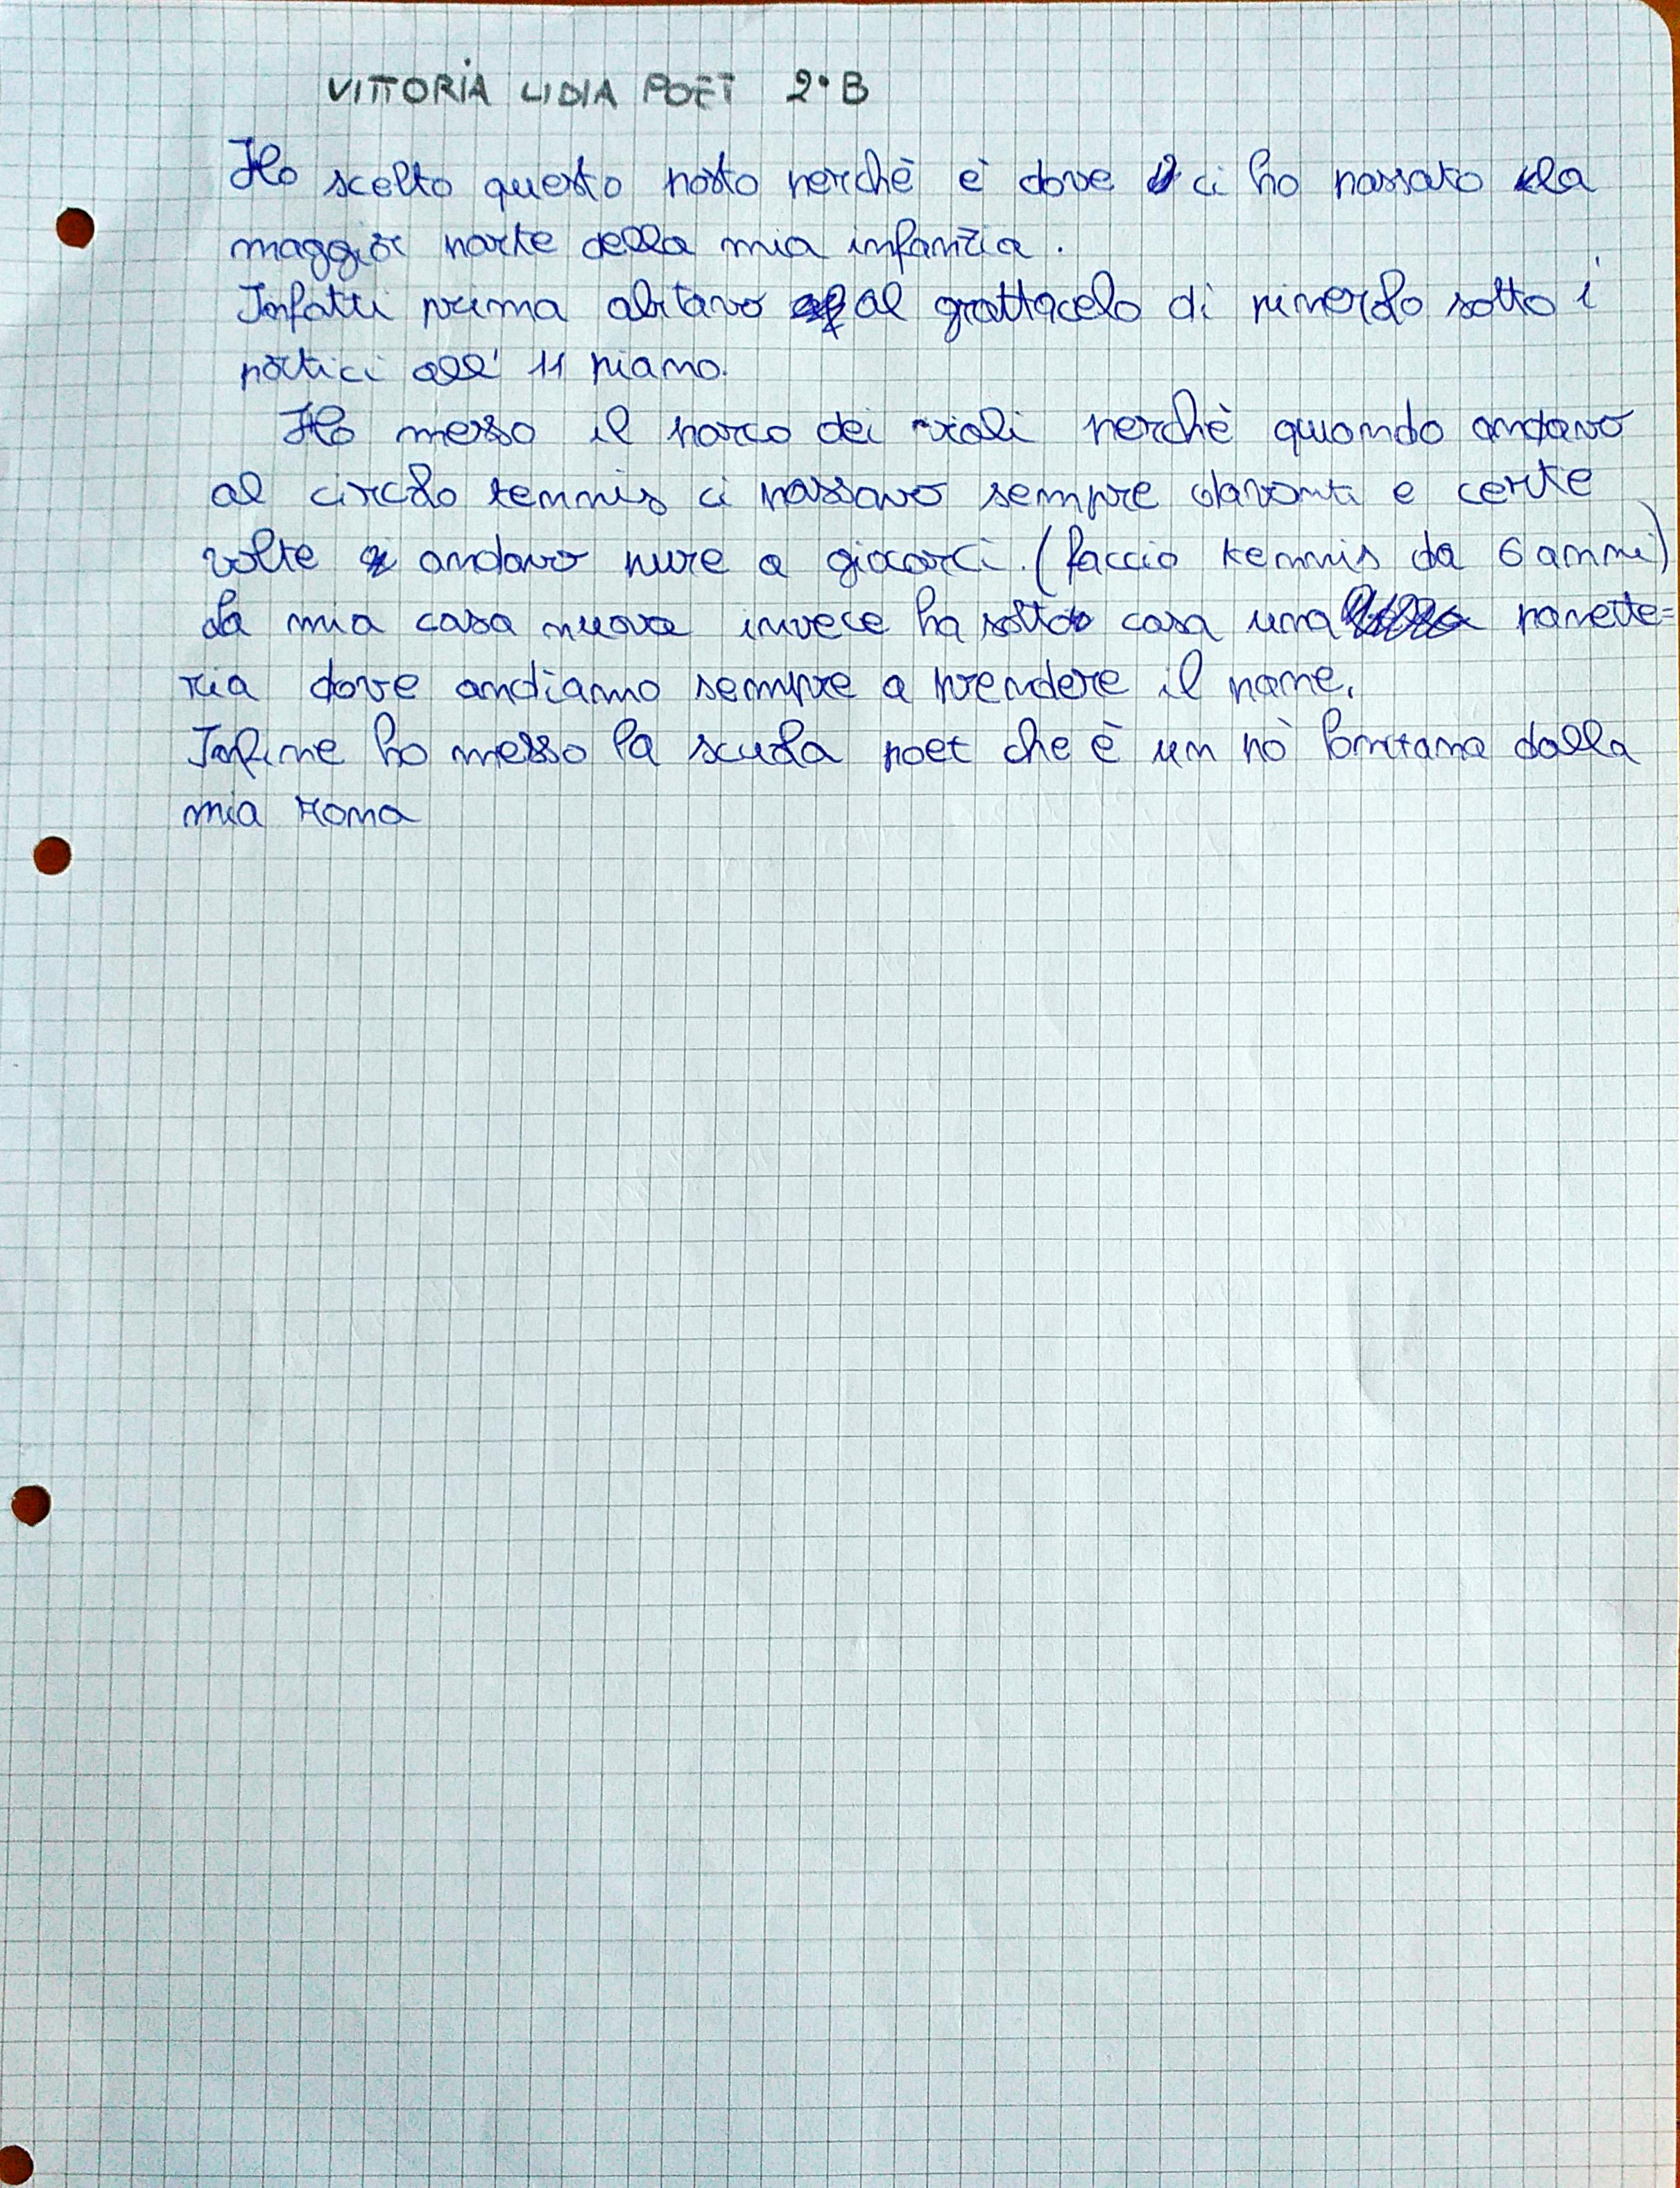 VITTORIA LIDIA POET 2°B
Ho scelto questo posto perchè è dove ci ho passato la
maggior parte della mia infanzia.
Infatti prima abitavo al grattacelo di pinerolo sotto i
portici all' 11 piano.
Ho messo il parco dei viali perchè quando andavo
al circolo tennis ci passavo sempre davanti e certe
volte andavo pure a giocarci. (faccio tennis da 6 anni)
La mia casa nuova invece ha sotto casa una panette=
ria dove andiamo sempre a prendere il pane.
Infine ho messo la scuola poet che è un pò lontana dalla
mia zona